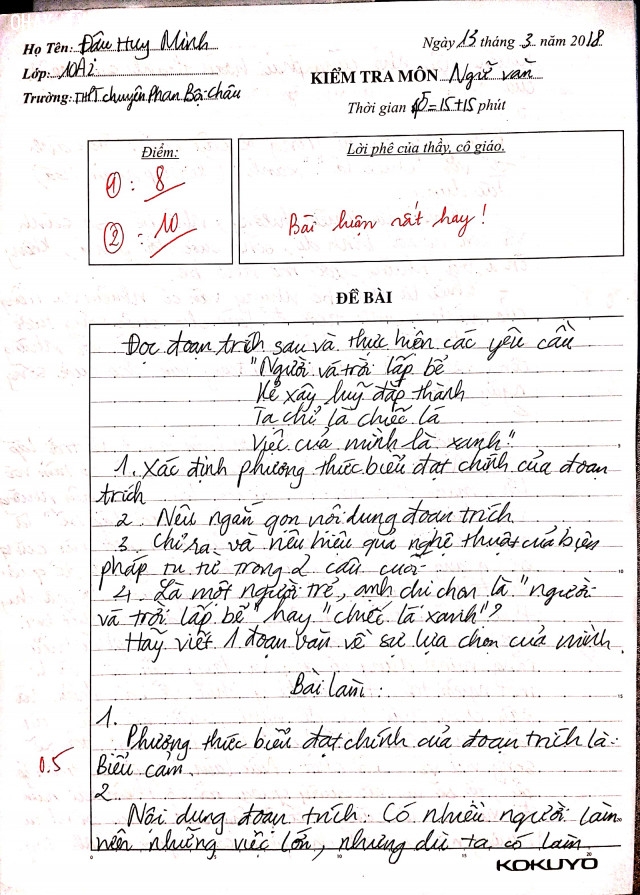 Họ Tên: Đậu Huy Minh
Ngày 13 tháng 3 năm 2018
Lớp: 10A1
KIỂM TRA MÔN Ngữ văn
Trường: THPT chuyên Phan Bội Châu
Thời gian = 15+15 phút
Điểm:
Lời phê của thầy, cô giáo.
① : 8
② : 10
Bài hiện rất hay!
ĐỀ BÀI
Đọc đoạn trích sau và thực hiện các yêu cầu
"Người vá trời lấp bể
Kẻ xây luỹ đắp thành
Ta chỉ là chiếc lá
Việc của mình là xanh"
1. Xác định phương thức biểu đạt chính của đoạn
trích
2. Nêu ngắn gọn nội dung đoạn trích
3. Chỉ ra và nêu hiệu quả nghệ thuật của biện
pháp tu từ trong 2 câu cuối
4. Là một người trẻ, anh chị chọn là "người
vá trời lấp bể" hay "chiếc lá xanh"?
Hãy viết 1 đoạn văn về sự lựa chọn của mình.
Bài làm:
1.
Phương thức biểu đạt chính của đoạn trích là:
0.5
Biểu cảm.
2.
Nội dung đoạn trích: Có nhiều người làm
nên những việc lớn, nhưng dù ta có làm
0 5 10 15 20
KOKUYO